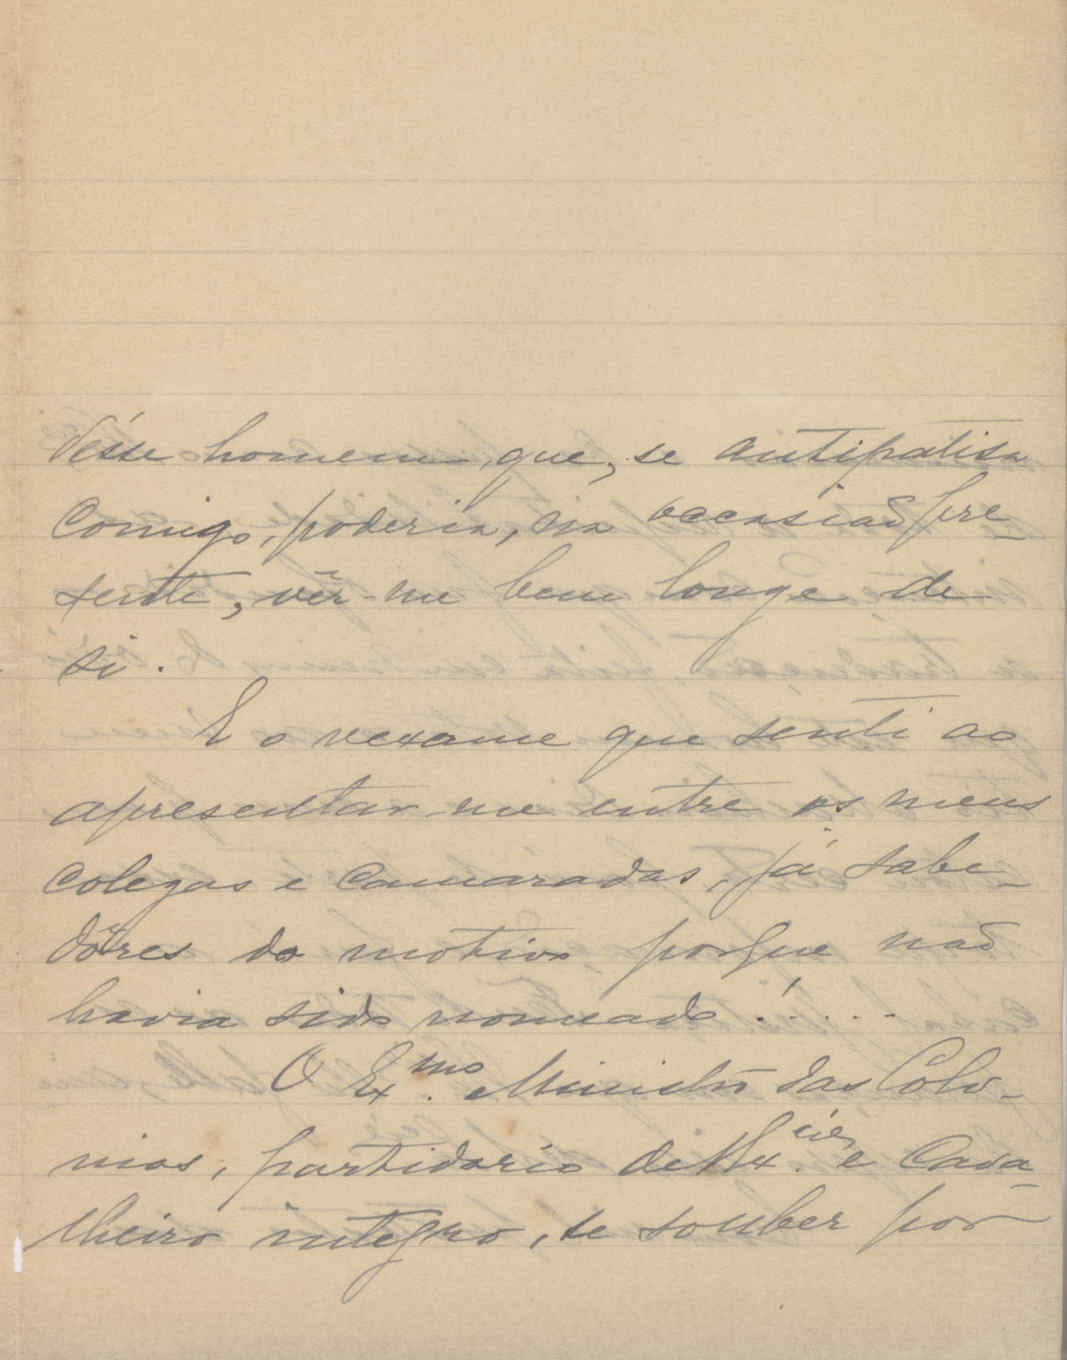 désse homem que, se antipatisa
comigo, poderia, na occasião pre-
sente, vêr-me bem longe de
si.
E o vexame que senti ao
apresentar-me entre os meus
colegas e camaradas, já sabe-
dôres do motivo porque não
havia sido nomeado!....
O Ex.mo Ministro das Colo-
nias, partidario de V. Ex.cia e cava-
lheiro integro, se souber por